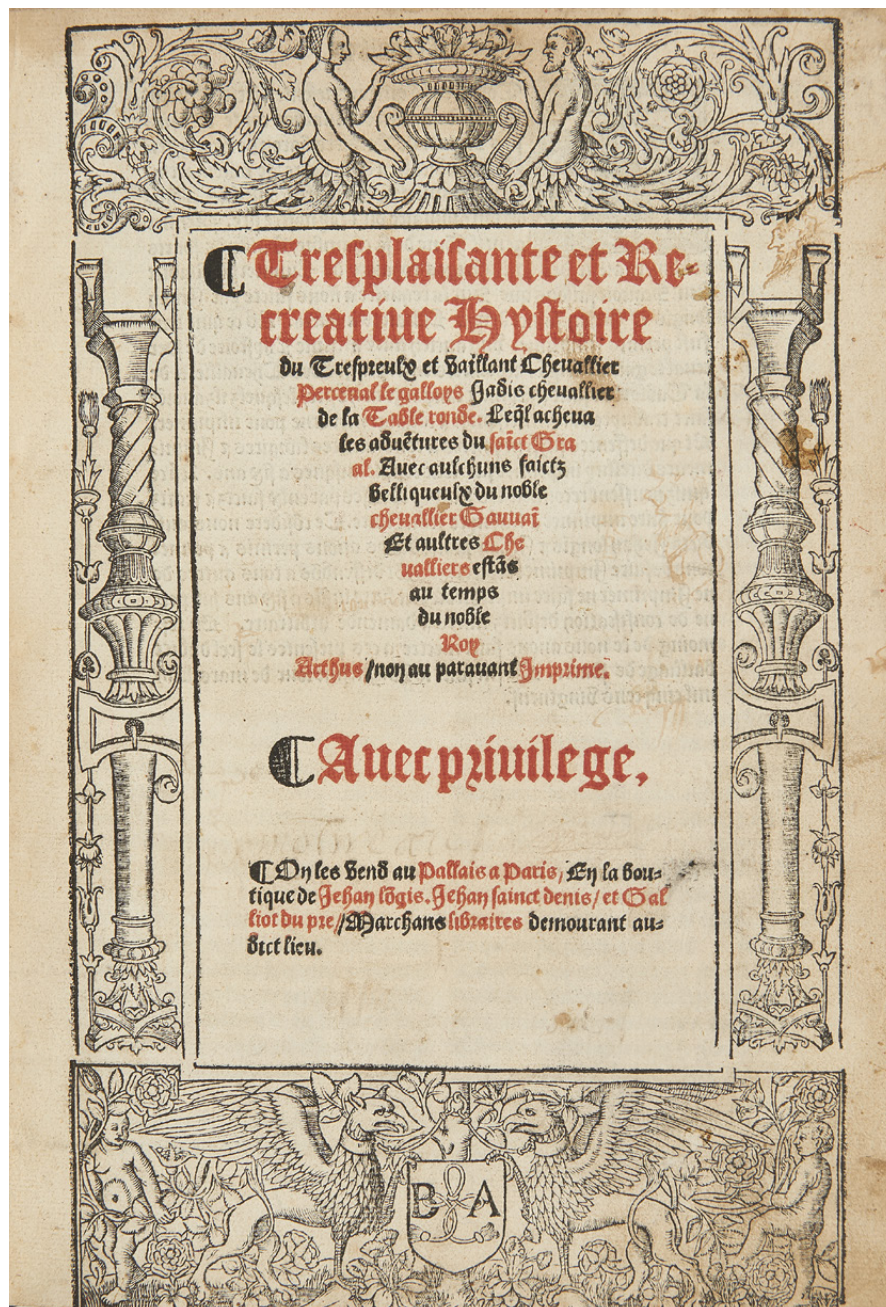 ¶ Tresplaisante et Re-
creatiue Hystoire
du Trespreulx et vaillant Cheuallier
Perceual le galloys Jadis cheuallier
de la Table ronde. Leq̃l acheua
les aduẽtures du saĩct Gra
al. Auec aulchuns faictz
belliqueulx du noble
cheuallier Gauuaĩ
Et aultres Che
ualliers estãs
au temps
du noble
Roy
Arthus / non au parauant Imprime.
¶ Auec priuilege.
¶ On les vend au Pallais a Paris, En la bou-
tique de Jehan lõgis. Jehan sainct denis / et Gal
liot du pre // Marchans libraires demourant au-
dict lieu.
B A